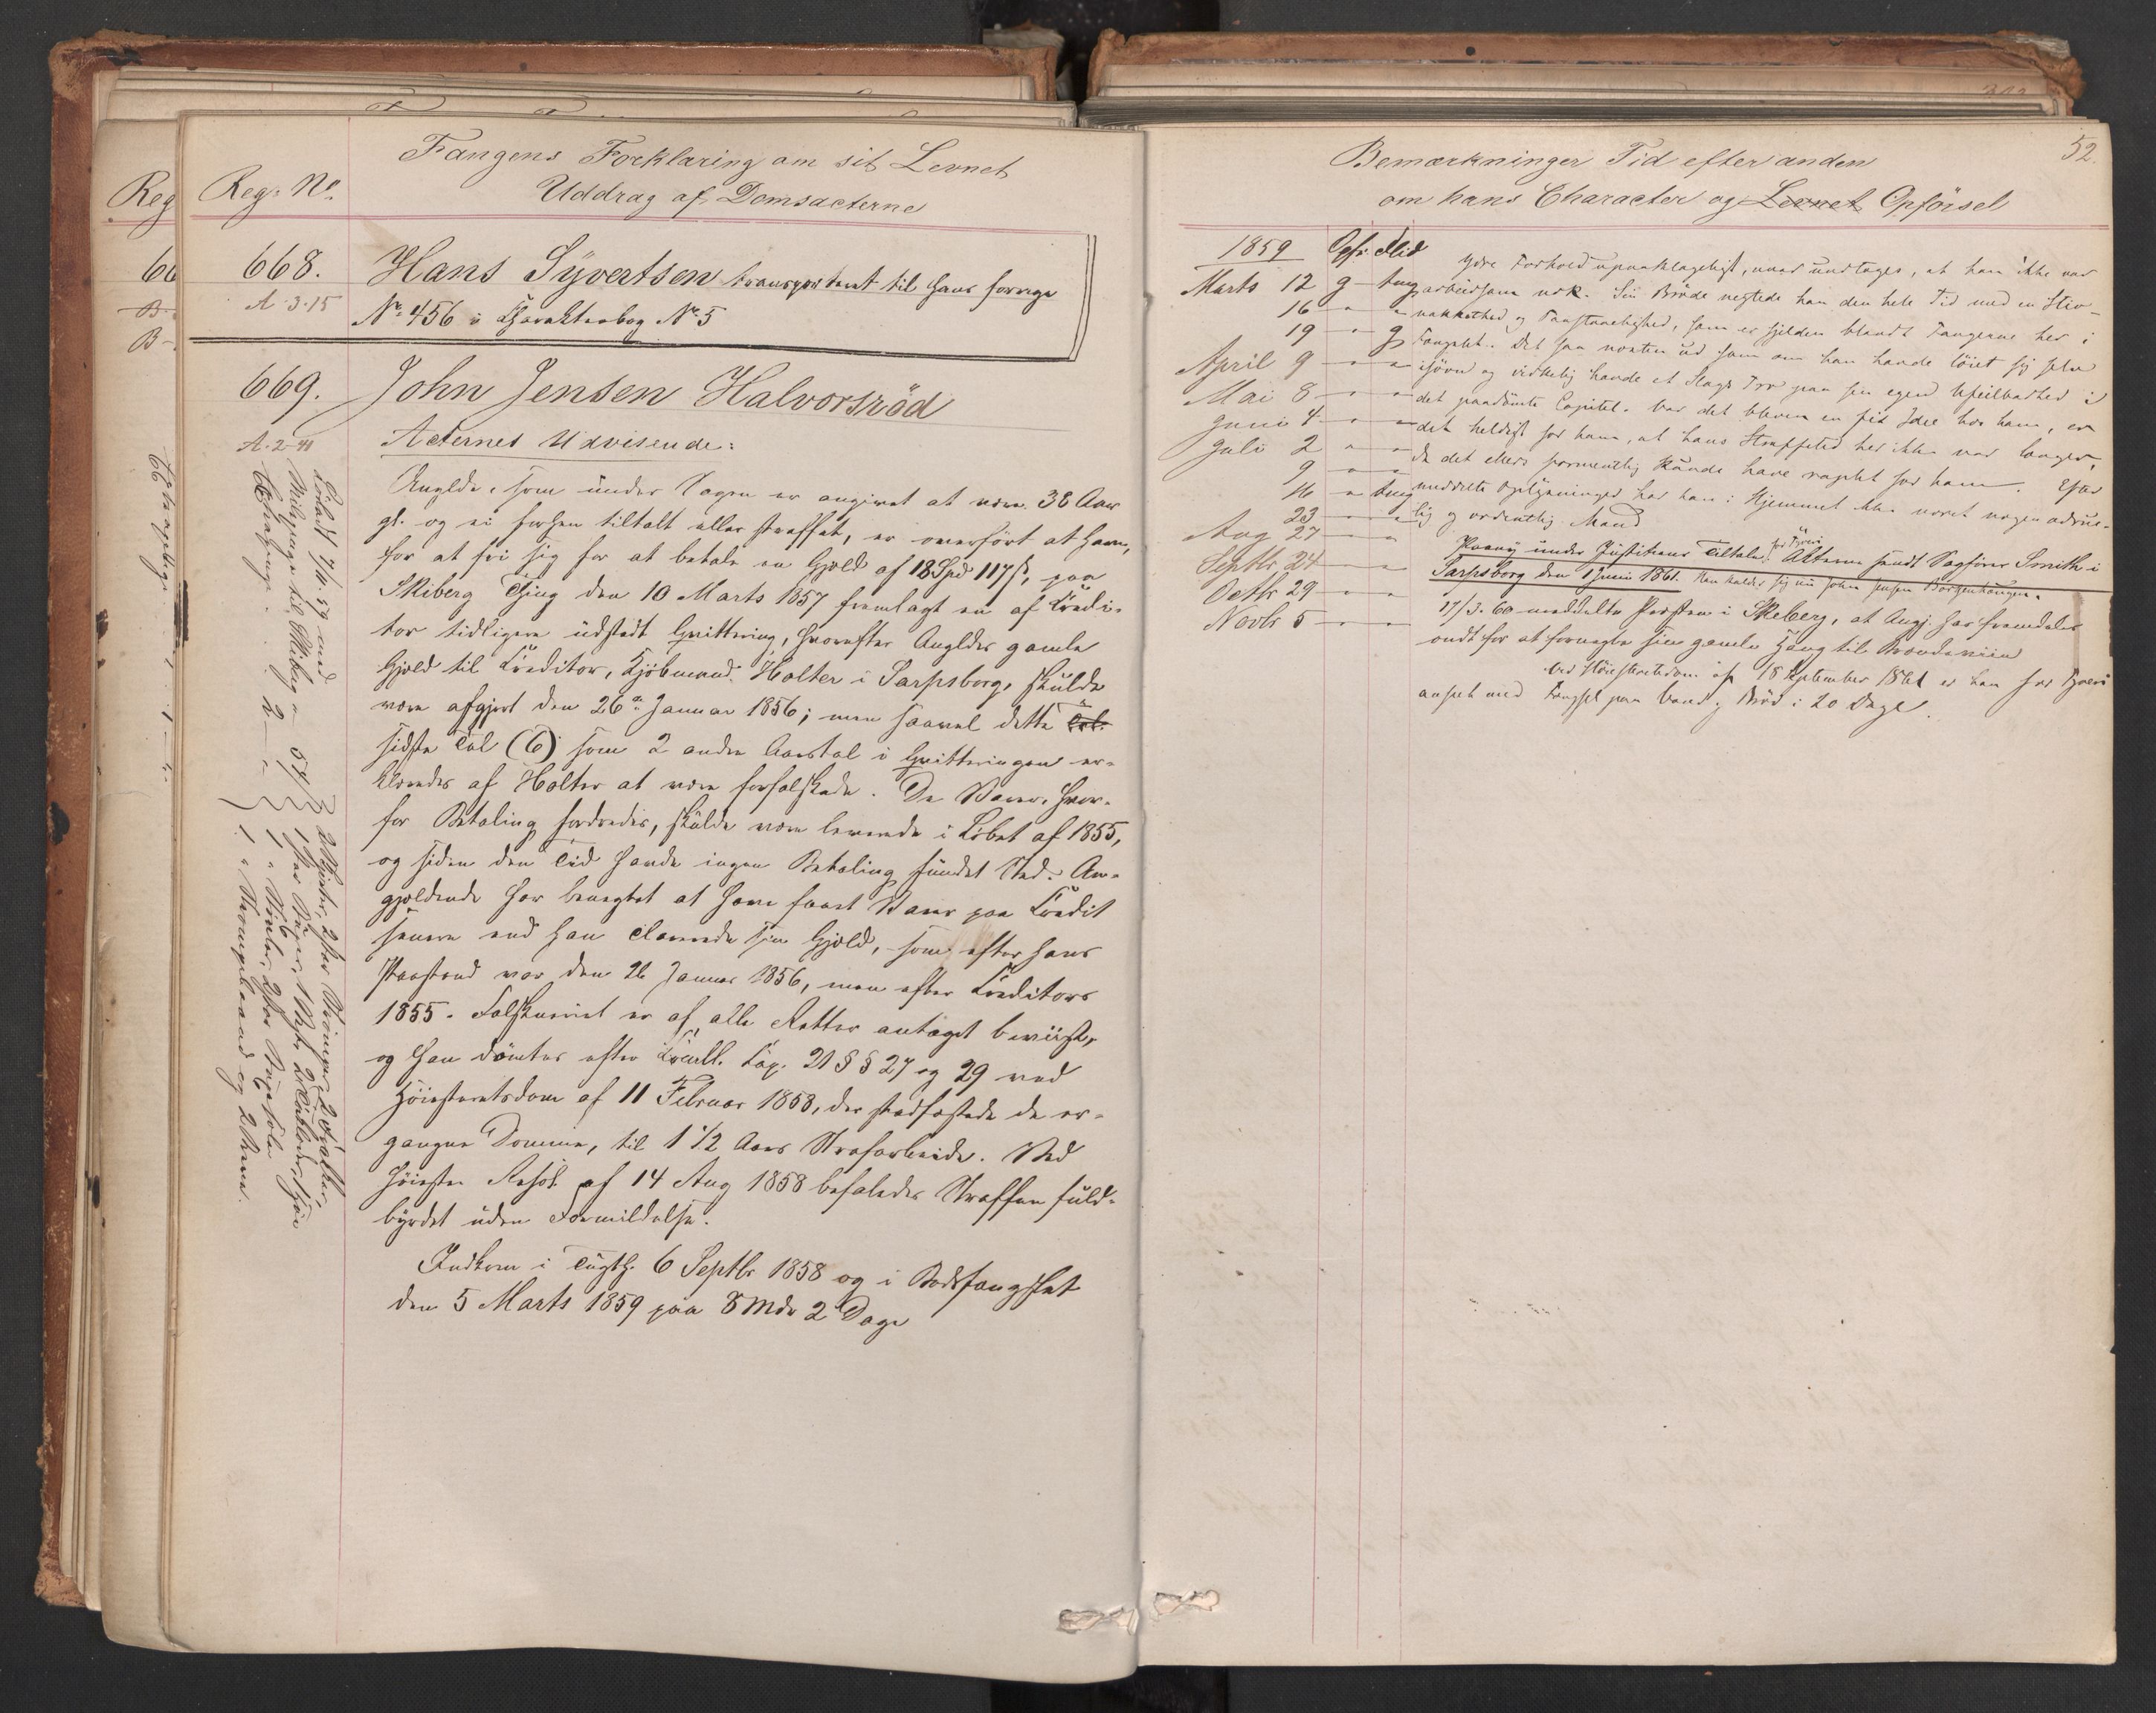 Fangens Forklaring om sit Levnet
Reg: No.
Uddrag af Domsacterne
668.
Hans Syvertsen transporteret til hans forrige
A 3-15
No 456 i Charakterbog No 5
669.
John Jensen Halvorsröd
A. 2-41
Acternes Udvisende:
Angldr. som under Sagen er angivet at være 38 Aar
gl. og ei forhen tiltalt eller straffet, er overført at have,
for at fri sig for at betale en Gjæld af 18 Spd 117 ß, paa
Skiberg Thing den 10 Marts 1857 fremlagt en af Credi-
tor tidligere udstedt Qvittering, hvorefter Angldrs gamle
Gjæld til Creditor, Kjöbmand Holter i Sarpsborg, skulde
være afgjort den 26de Januar 1856; men saavel dette
sidste Tal (6) som 2 andre Aarstal i Qvitteringen er-
klæredes af Holter at være forfalskede. De Varer, hvor-
for Betaling fordredes, skulde være leverede i Löbet af 1855,
og siden den Tid havde ingen Betaling fundet Sted. An-
gjældende har benegtet at have faaet Varer paa Credit
senere end han clarerede sin Gjæld, som efter hans
Paastand var den 26 Januar 1856, men efter Creditors
1855. Falskneriet er af alle Retter antaget beviist,
og han dömtes efter Crimll. Cap. 21 §§ 27 og 29 ved
Höiesteretsdom af 11 Februar 1858, der stadfæstede de er-
gangne Domme, til 1 1/2 Aars Strafarbeide. Ved
höieste Resol. af 14 Aug 1858 befaledes Straffen fuld-
byrdet uden Formildelse.
Indkom i Tugth. 6 Septbr 1858 og i Bodsfængslet
den 5 Marts 1859 paa 8 Mdr 2 Dage
Lösladt 7/11. 59 med
Milepenge til Skiberg
52.
Bemærkninger Tid efter anden
om hans Character og Levnet Opförsel
1859 Opf: Flid
Marts 12 g tmg
16
19 g
April 9
Mai 8
Juni 4
Juli 2
9
16 tmg
23
Aug 27
Septbr 24
Octbr 29
Novbr 5
Ydre Forhold upaaklageligt, naar undtages, at han ikke var
arbeidsom nok. Sin Bröde negtede han den hele Tid med en Stiv-
nakkethed og Paastaaelighed, som er sjelden blandt Fangerne her i
Fængslet. Det saa næsten ud som om han havde löiet sig selv
isövn og virkelig havde et Slags Tro paa sin egen Ufeilbarhed i
det paadömte Capitel. Var det bleven en fix Idee hos ham, er
det heldigt for ham, at hans Straffetid her ikke var længer,
da det ellers formentlig kunde have raget for ham. Efter
meddelte Oplysninger har han i Hjemmet ikke været nogen ædrue-
lig og ordentlig Mand
Paany under Justitiens Tiltale for Tyveri. Akterne sendt Sagförer Smith i
Sarpsborg den 1 Juni 1861. Han kalder sig nu John Jensen Borgenhaugen.
17/3. 60 meddelte Præsten i Skeberg, at Angj. har fremdeles
ondt for at fornegte sin gamle Hang til Brændeviin
Ved Höiesteretsdom af 18 September 1861 er han for Tyveri
anseet med Fængsel paa Vand og Bröd i 20 Dage.